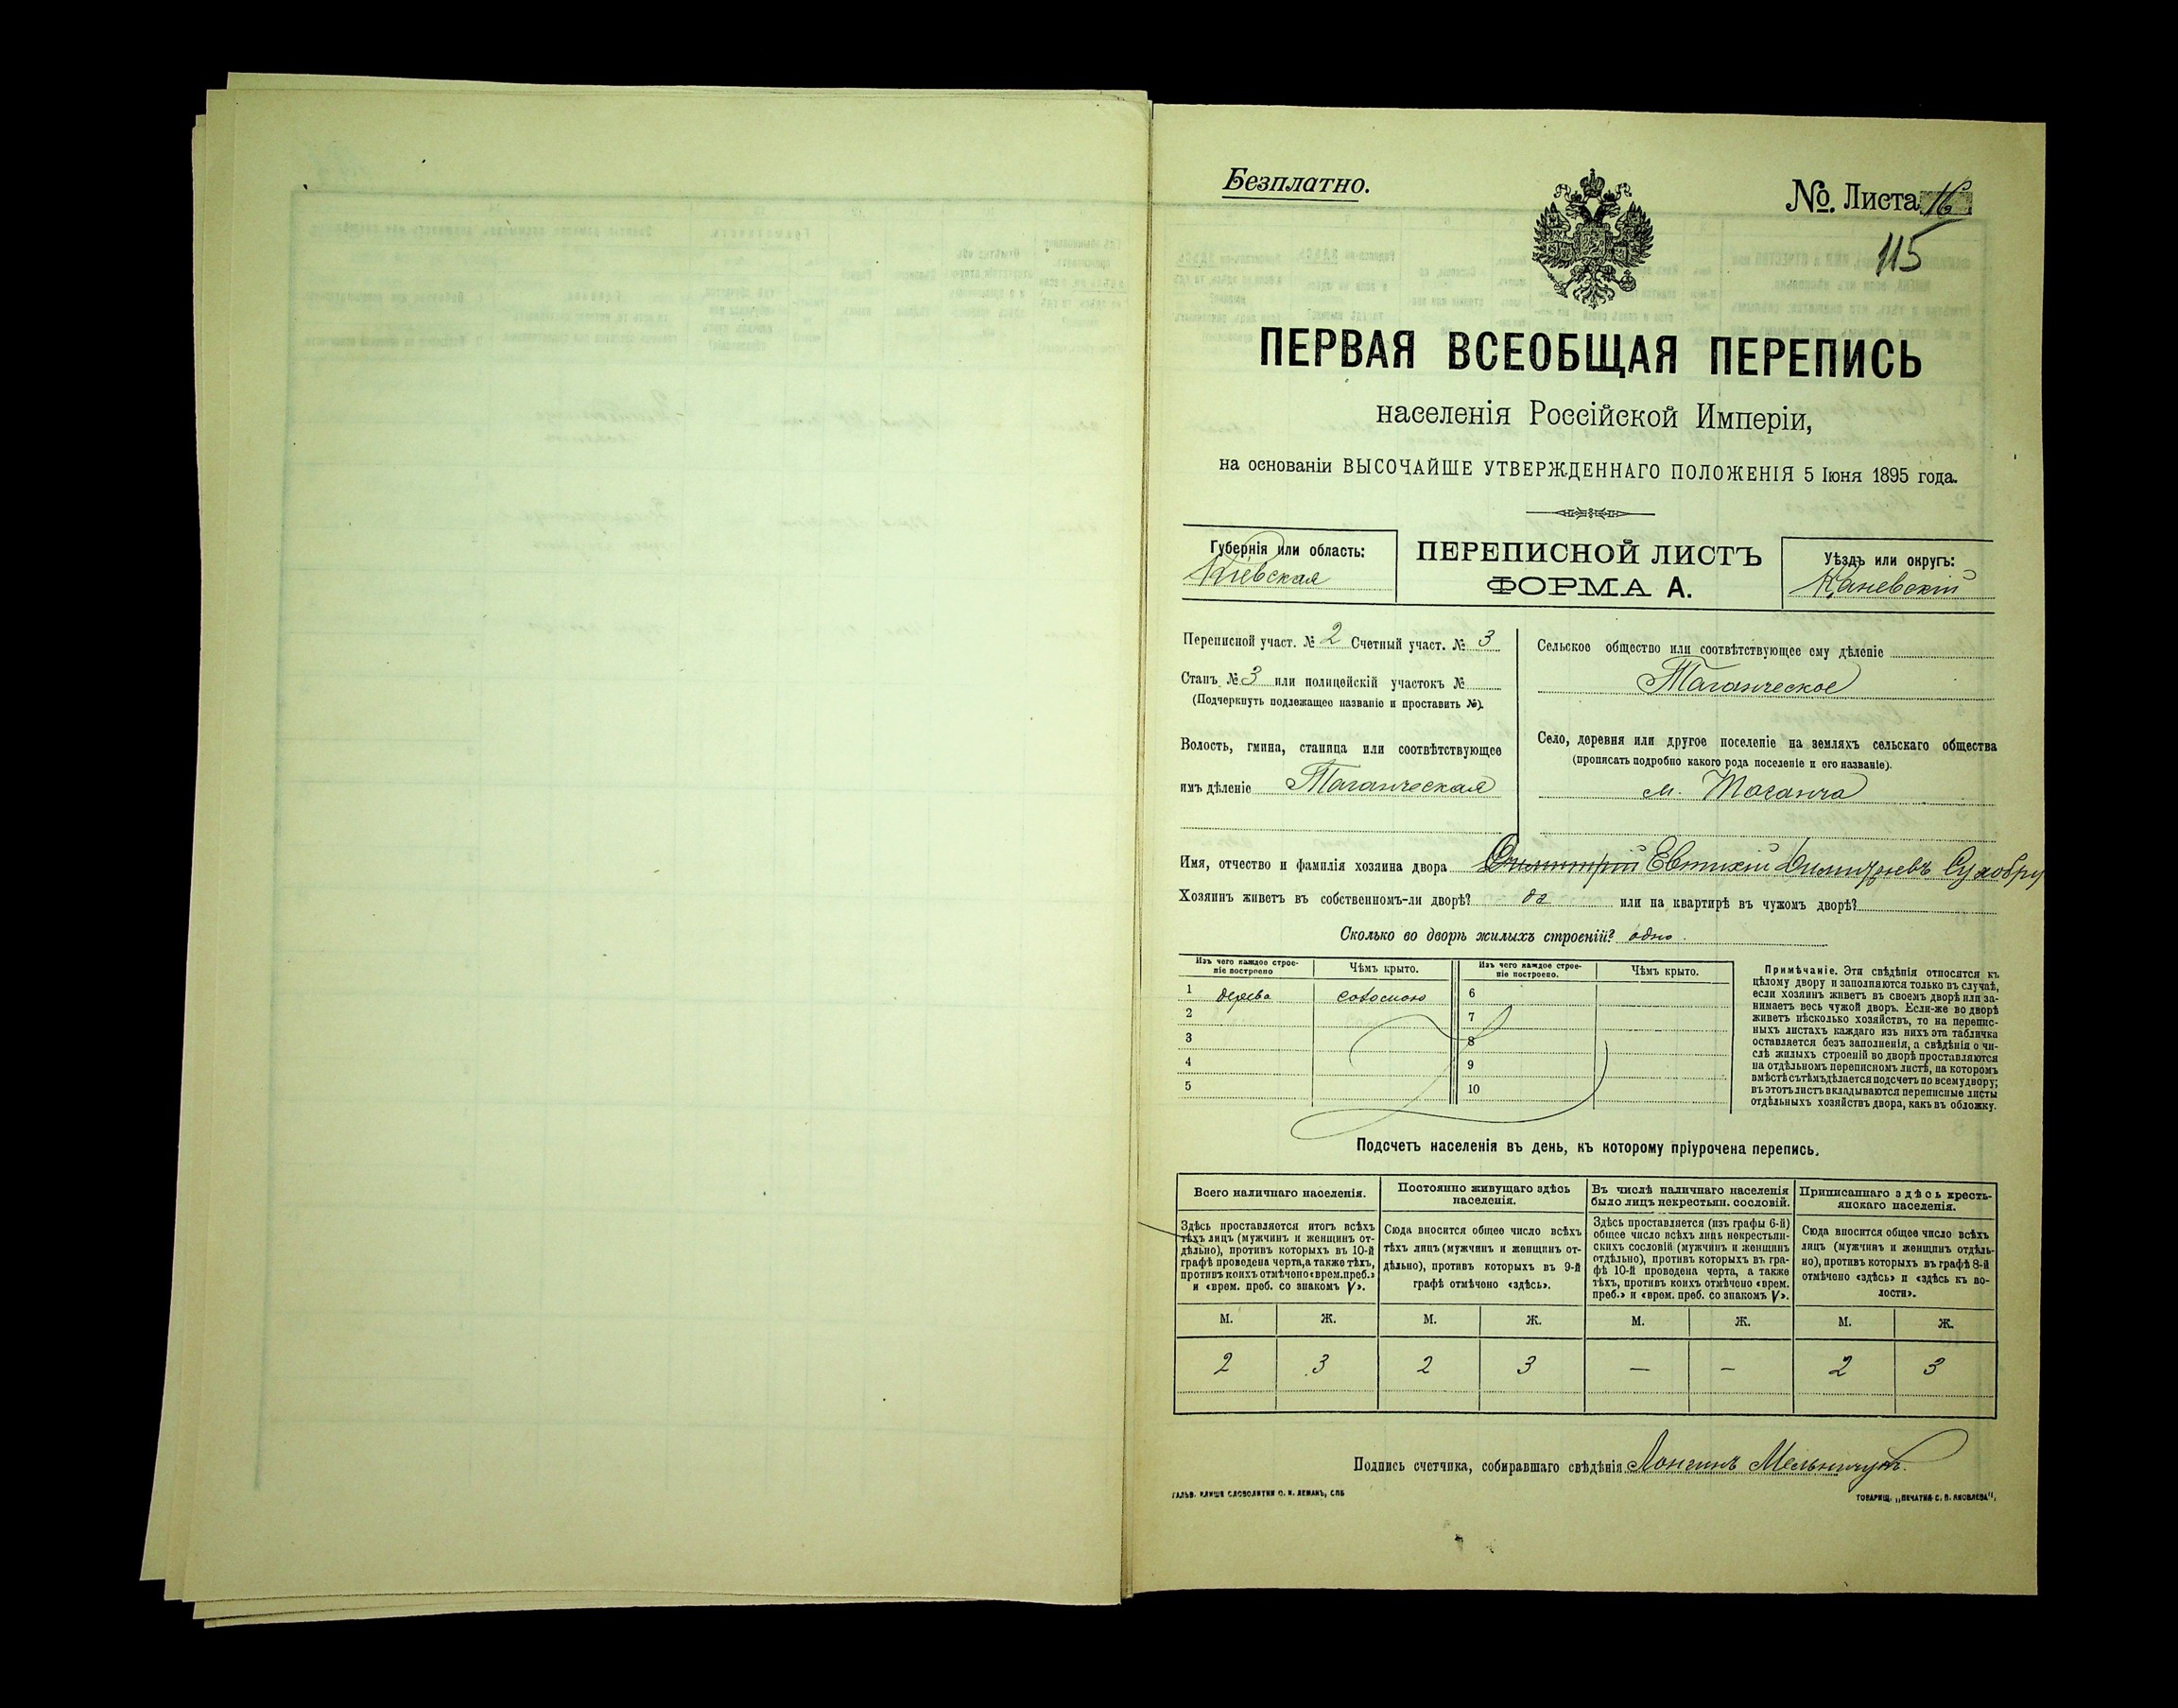 Безплатно.
№. Листа 16
115
ПЕРВАЯ ВСЕОБЩАЯ ПЕРЕПИСЬ
населенія Россійской Имперіи,
на основаніи ВЫСОЧАЙШЕ УТВЕРЖДЕННАГО ПОЛОЖЕНІЯ 5 Іюня 1895 года.
Губернія или область:
Кіевская
ПЕРЕПИСНОЙ ЛИСТЪ
ФОРМА А.
Уѣздъ или округъ:
Каневскій
Переписной участ. № 2 Счетный участ. № 3
Станъ № 3 или полицейскій участокъ №
(Подчеркнуть подлежащее названіе и проставить №).
Волость, гмина, станица или соотвѣтствующее
имъ дѣленіе Таганческая
Сельское общество или соотвѣтствующее ему дѣленіе
Таганческое
Село, деревня или другое поселеніе на земляхъ сельскаго общества
(прописать подробно какого рода поселеніе и его названіе).
м. Таганча
Имя, отчество и фамилія хозяина двора Димитрій Евтихій Димитріевъ Сухобру
Хозяинъ живетъ въ собственномъ-ли дворѣ? да или на квартирѣ въ чужомъ дворѣ?
Сколько во дворѣ жилыхъ строеній? одно.
Изъ чего каждое строе-
ніе построено
Чѣмъ крыто.
Изъ чего каждое строе-
ніе построено.
Чѣмъ крыто.
1 дерева соломою 6
2 7
3 8
4 9
5 10
Примѣчаніе. Эти свѣдѣнія относятся къ
цѣлому двору и заполняются только въ случаѣ,
если хозяинъ живетъ въ своемъ дворѣ или за-
нимаетъ весь чужой дворъ. Если-же во дворѣ
живетъ нѣсколько хозяйствъ, то на перепис-
ныхъ листахъ каждаго изъ нихъ эта табличка
оставляется безъ заполненія, а свѣдѣнія о чи-
слѣ жилыхъ строеній во дворѣ проставляются
на отдѣльномъ переписномъ листѣ, на которомъ
вмѣстѣ съ тѣмъ дѣлается подсчетъ по всему двору;
въ этотъ листъ вкладываются переписные листы
отдѣльныхъ хозяйствъ двора, какъ въ обложку.
Подсчетъ населенія въ день, къ которому пріурочена перепись.
Всего наличнаго населенія.
Здѣсь проставляется итогъ всѣхъ
тѣхъ лицъ (мужчинъ и женщинъ от-
дѣльно), противъ которыхъ въ 10-й
графѣ проведена черта, а также тѣхъ,
противъ коихъ отмѣчено «врем. преб.»
и «врем. преб. со знакомъ V».
Постоянно живущаго здѣсь
населенія.
Сюда вносится общее число всѣхъ
тѣхъ лицъ (мужчинъ и женщинъ от-
дѣльно), противъ которыхъ въ 9-й
графѣ отмѣчено «здѣсь».
Въ числѣ наличнаго населенія
было лицъ некрестьян. сословій.
Здѣсь проставляется (изъ графы 6-й)
общее число всѣхъ лицъ некрестьян-
скихъ сословій (мужчинъ и женщинъ
отдѣльно), противъ которыхъ въ гра-
фѣ 10-й проведена черта, а также
тѣхъ, противъ коихъ отмѣчено «врем.
преб.» и «врем. преб. со знакомъ V».
Приписаннаго здѣсь кресть-
янскаго населенія.
Сюда вносится общее число всѣхъ
лицъ (мужчинъ и женщинъ отдѣль-
но), противъ которыхъ въ графѣ 8-й
отмѣчено «здѣсь» и «здѣсь къ во-
лости».
М. Ж. М. Ж. М. Ж. М. Ж.
2 3 2 3 — — 2 3
Подпись счетчика, собиравшаго свѣдѣнія Лонгинъ Мельничукъ.
ГАЛЬВ. КЛИШЕ СЛОВОЛИТНИ О. И. ЛЕМАНЪ, СПБ
ТОВАРИЩ. „ПЕЧАТНЯ С. П. ЯКОВЛЕВА",